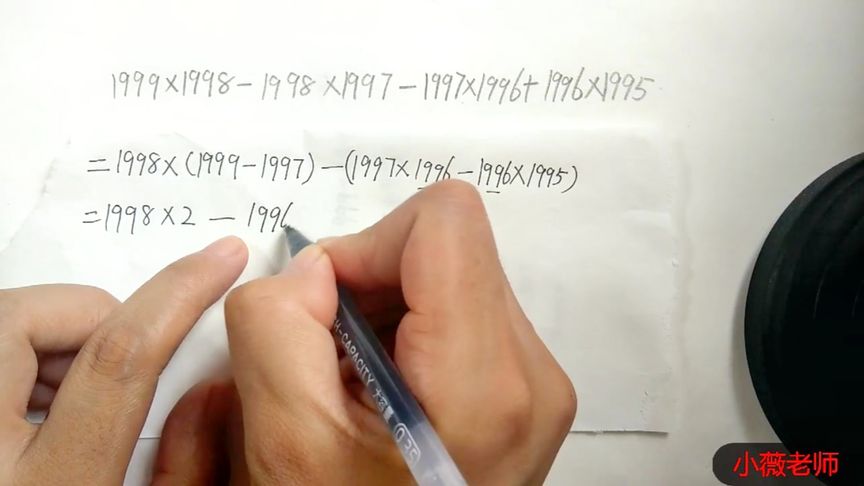 1999×1998-1998×1997-1997×1996+1996×1995
=1998×(1999-1997)-(1997×1996-1996×1995)
=1998×2-1996
CAPACITY
小薇老师